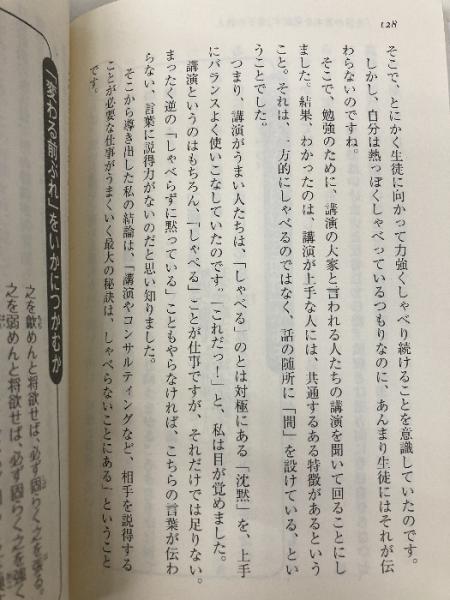 128
そこで、とにかく生徒に向かって力強くしゃべり続けることを意識していたのです。
しかし、自分は熱っぽくしゃべっているつもりなのに、あんまり生徒にはそれが伝
わらないのですね。
そこで、勉強のために、講演の大家と言われる人たちの講演を聞いて回ることにし
ました。結果、わかったのは、講演が上手な人には、共通するある特徴があるという
こと。それは、一方的にしゃべるのではなく、話の随所に「間」を設けている、とい
うことでした。
つまり、講演がうまい人たちは、「しゃべる」のとは対極にある「沈黙」を、上手
にバランスよく使いこなしていたのです。「これだっ！」と、私は目が覚めました。
講演というのはもちろん、「しゃべる」ことが仕事ですが、それだけでは足りない。
まったく逆の「しゃべらずに黙っている」こともやらなければ、こちらの言葉が伝わ
らない、言葉に説得力がないのだと思い知りました。
そこから導き出した私の結論は、「講演やコンサルティングなど、相手を説得する
ことが必要な仕事がうまくいく最大の秘訣は、しゃべらないことにある」ということ
です。
「変わる前ぶれ」をいかにつかむか
之を歙めんと将欲せば、必ず固らく之を張る。
之を弱めんと将欲せば、必ず固らく之を強く